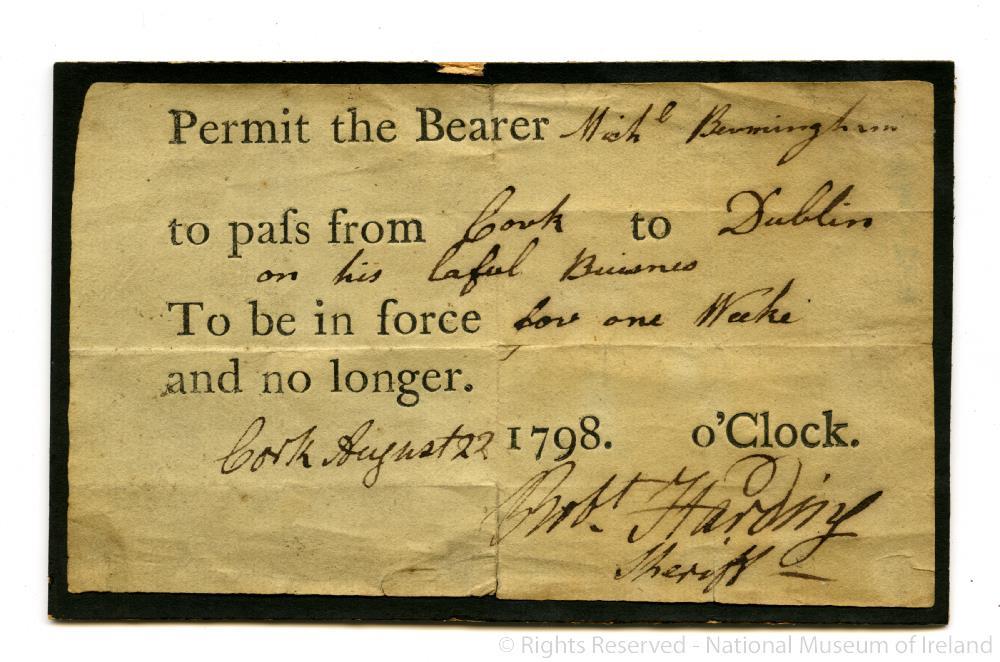 Permit the Bearer Mich^l Bermingham
to paſs from Cork to Dublin
on his laful Buisnes
To be in force for one Weeke
and no longer.
Cork August 22 1798. o'Clock.
Rob^t Harding
Sheriff
© Rights Reserved - National Museum of Ireland